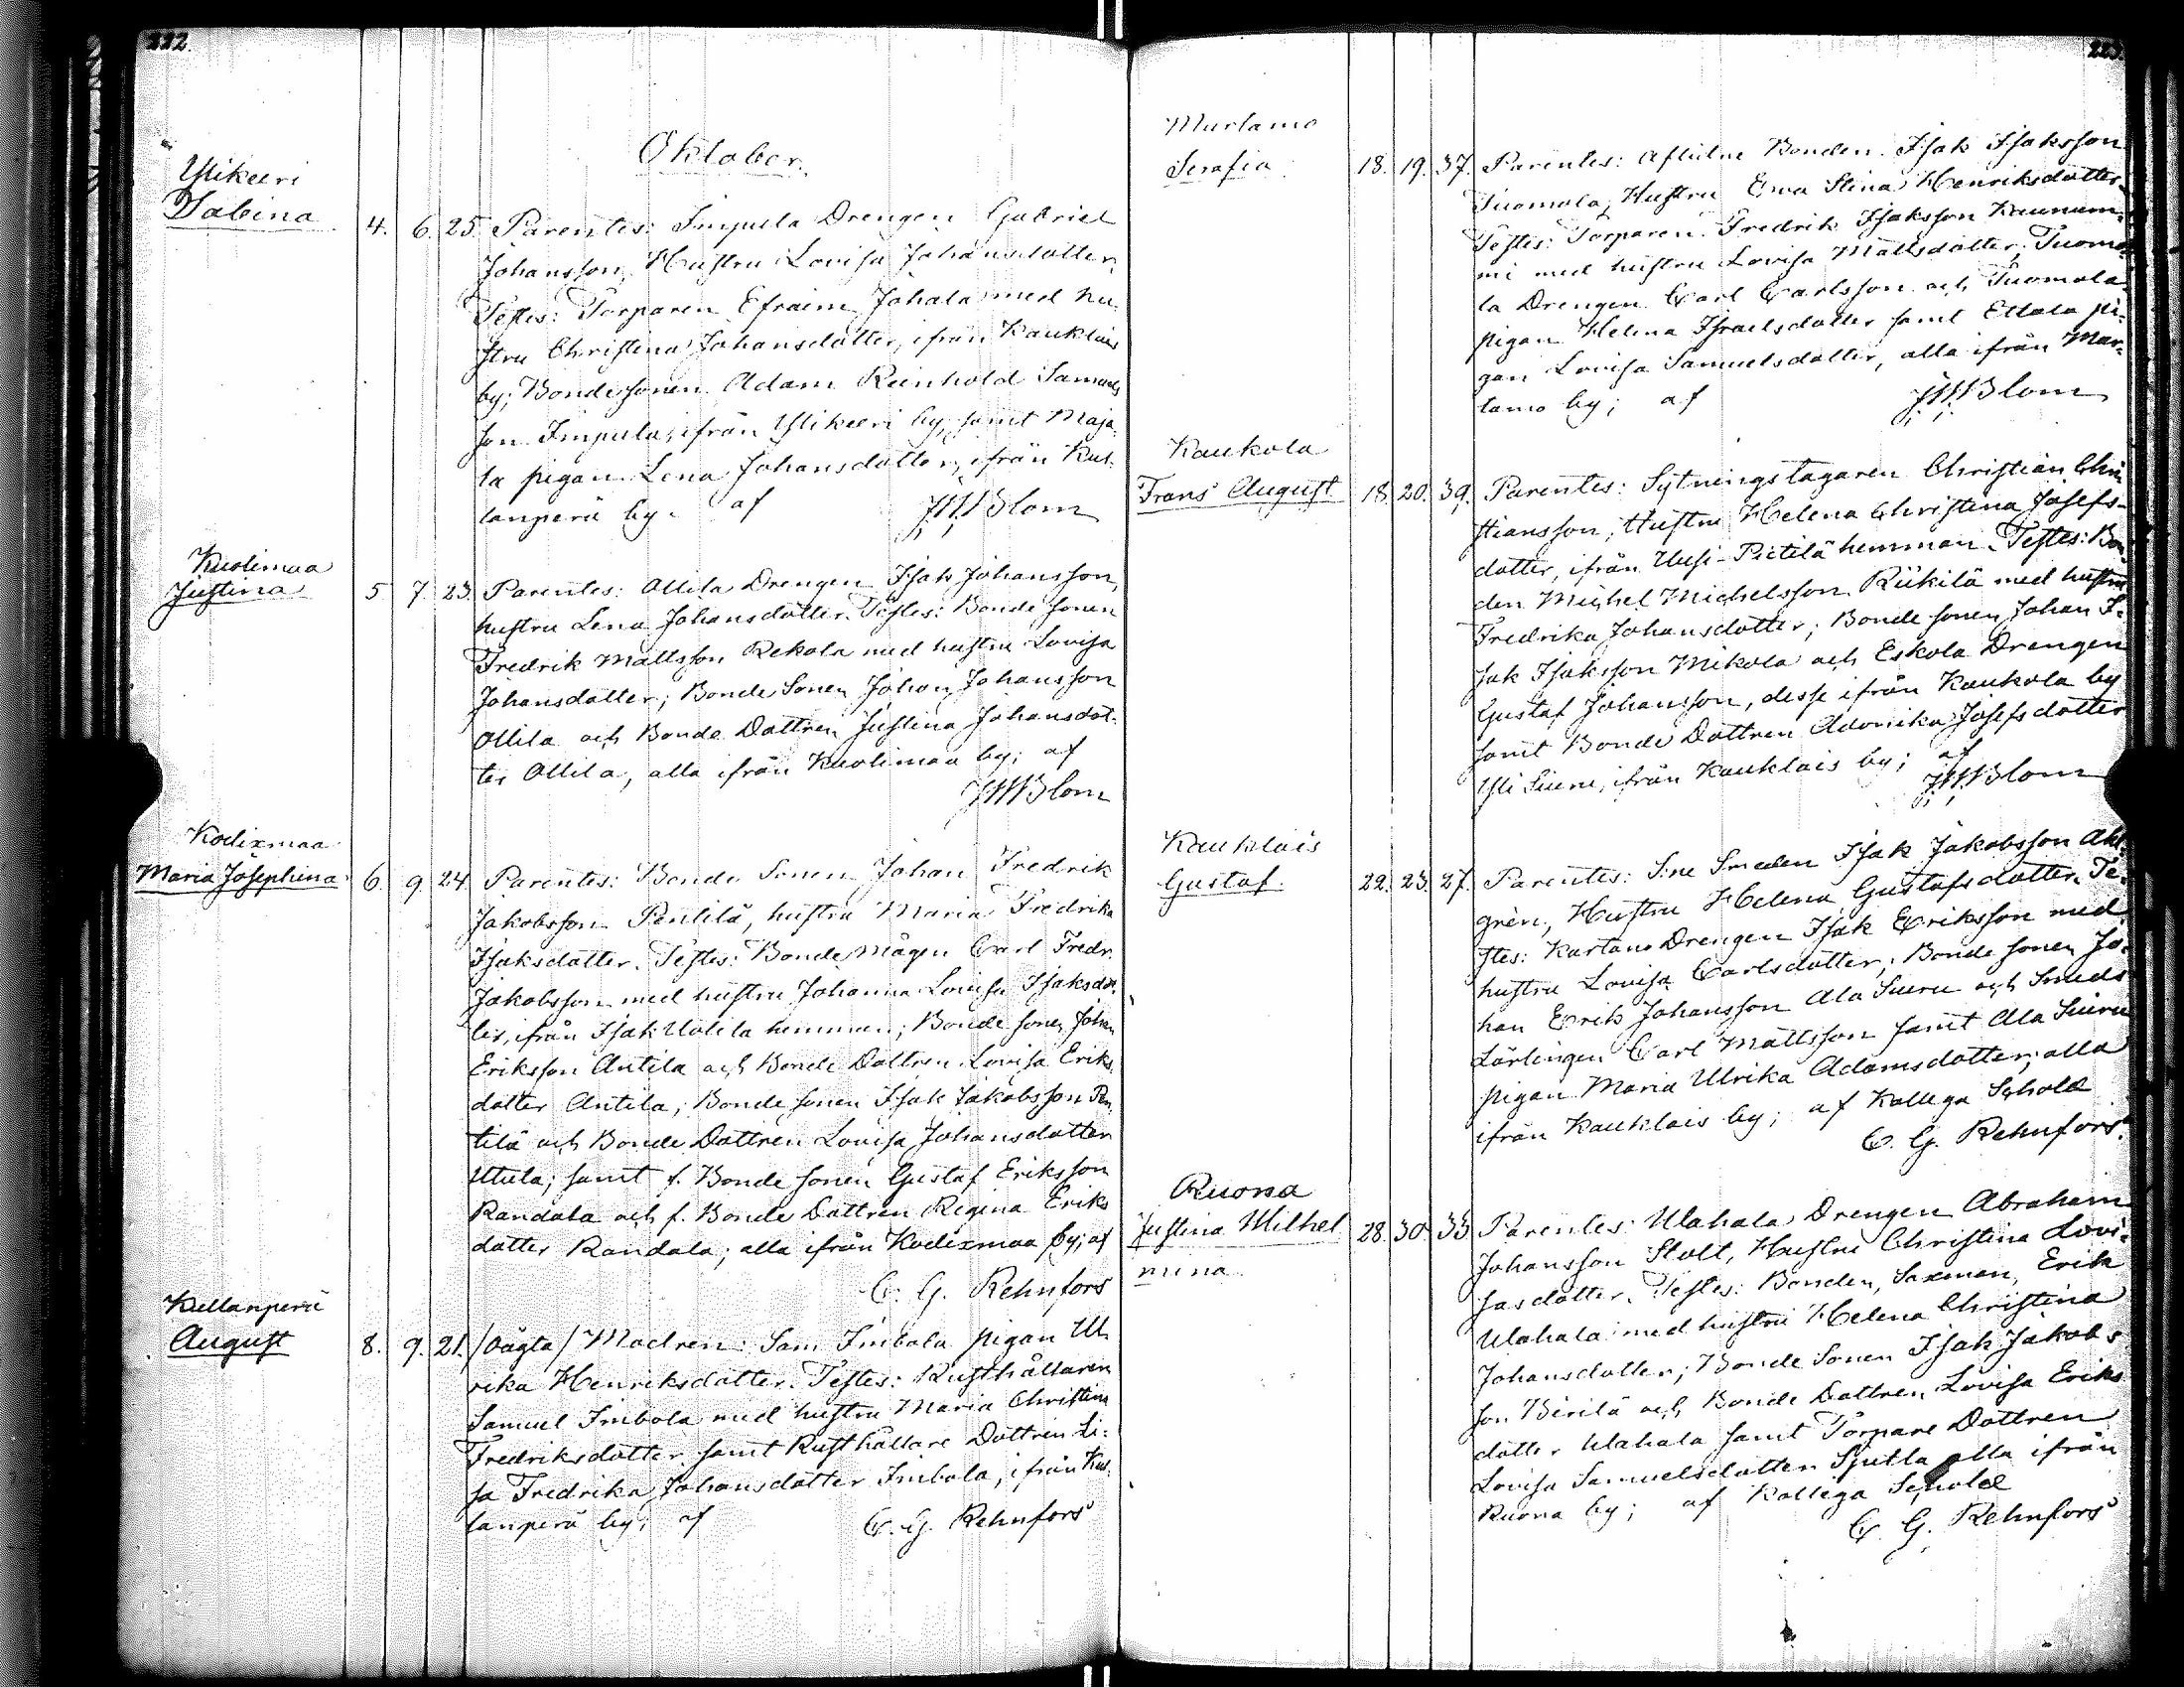 222.
Oktober.
Ylikeeri
Sabina 4. 6. 25. Parentes: Simpula Drengen Gabriel
Johansson, Hustru Lovisa Johansdotter,
Testes: Torparen Efraim Johala med hu-
stru Christina Johansdotter, ifrån Kauklais
by; Bondesonen Adam Reinhold Samuels
son Impula, ifrån Ylikeeri by, samt Maja-
la pigan Lena Johansdotter, ifrån Kul-
lanperä by. af JWBlom
Kuolimaa
Justina 5 7. 23. Parentes: Ollila Drengen Isak Johansson,
hustru Lena Johansdotter. Testes: Bonde sonen
Fredrik Mattsson Rekola med hustru Lovisa
Johansdotter; Bonde Sonen Johan Johansson
Ollila och Bonde Dottren Justina Johansdot-
ter Ollila, alla ifrån Kuolimaa by; af
JWBlom
Kodixmaa
Maria Josephina 6. 9 24. Parentes: Bonde Sonen Johan Fredrik
Jakobsson Pentilä, hustru Maria Fredrika
Isaksdotter. Testes: Bonde mågen Carl Fredr.
Jakobsson med hustru Johanna Lovisa Isaksdot-
ter, ifrån Isak Uotila hemman; Bonde sonen Johan
Eriksson Antila och Bonde Dottren Lovisa Eriks
dotter Antila; Bonde sonen Isak Jakobsson Pen-
tilä och Bonde Dottren Lovisa Johansdotter
Utula; samt f. Bonde sonen Gustaf Eriksson
Randala och f. Bonde Dottren Regina Eriks
dotter Randala; alla ifrån Kodixmaa by; af
C. G. Rehnfors
Kullanperä
August 8. 9. 21. /Oägta/ Modren: Sam Imbola pigan Ul-
rika Henriksdotter. Testes: Rusthållaren
Samuel Imbola med hustru Maria Christina
Fredriksdotter samt Rusthållare Dottren Li-
sa Fredrika Johansdotter Imbola, ifrån Kul-
lanperä by; af C. G. Rehnfors
223.
Murtamo
Serafia 18. 19. 37. Parentes: Aflidne Bonden Isak Isaksson
Tuomola, Hustru Ewa Stina Henriksdotter.
Testes: Torparen Fredrik Isaksson Kaunum-
mi med hustru Lovisa Mattsdotter, Tuomo-
la Drengen Carl Carlsson och Tuomola
pigan Helena Israelsdotter samt Ettala pi-
gan Lovisa Samuelsdotter, alla ifrån Mur-
tamo by; af JWBlom
Kaukola
Frans August 18. 20. 39. Parentes: Sytningstagaren Christian Chri-
stiansson, Hustru Helena Christina Josefs-
dotter, ifrån Uusi-Pietilä hemman. Testes: Bon-
den Michel Michelsson Riikilä med hustru
Fredrika Johansdotter; Bonde sonen Johan I-
sak Isaksson Mikola och Eskola Drengen
Gustaf Johansson, desse ifrån Kaukola by
samt Bonde Dottren Adonika Josefsdotter
Yli Siuru, ifrån Kauklais by; af
JWBlom
Kauklais
Gustaf. 22. 23. 27. Parentes: S:ne Smeden Isak Jakobsson Ahl
grén, Hustru Helena Gustafsdotter. Te-
stes: Kartano Drengen Isak Eriksson med
hustru Lovisa Carlsdotter; Bonde sonen Jo-
han Erik Johansson Ala Siuru och Smeds
Lärlingen Carl Mattsson samt Ala Siuru
pigan Maria Ulrika Adamsdotter; alla
ifrån Kauklais by; af Kollega Schola
C. G. Rehnfors.
Ruona
Justina Wilhel
mina 28. 30. 33 Parentes: Ulahala Drengen Abraham
Johansson Stolt, Hustru Christina Lovi-
sasdotter. Testes: Bonden, Saxman, Erik
Ulahala med hustru Helena Christina
Johansdotter; Bonde Sonen Isak Jakobs
son Berilä och Bonde Dottren Lovisa Eriks
dotter Ulahala samt Torpare Dottren
Lovisa Samuelsdotter alla ifrån
Ruona by; af Kollega Schola
C. G. Rehnfors